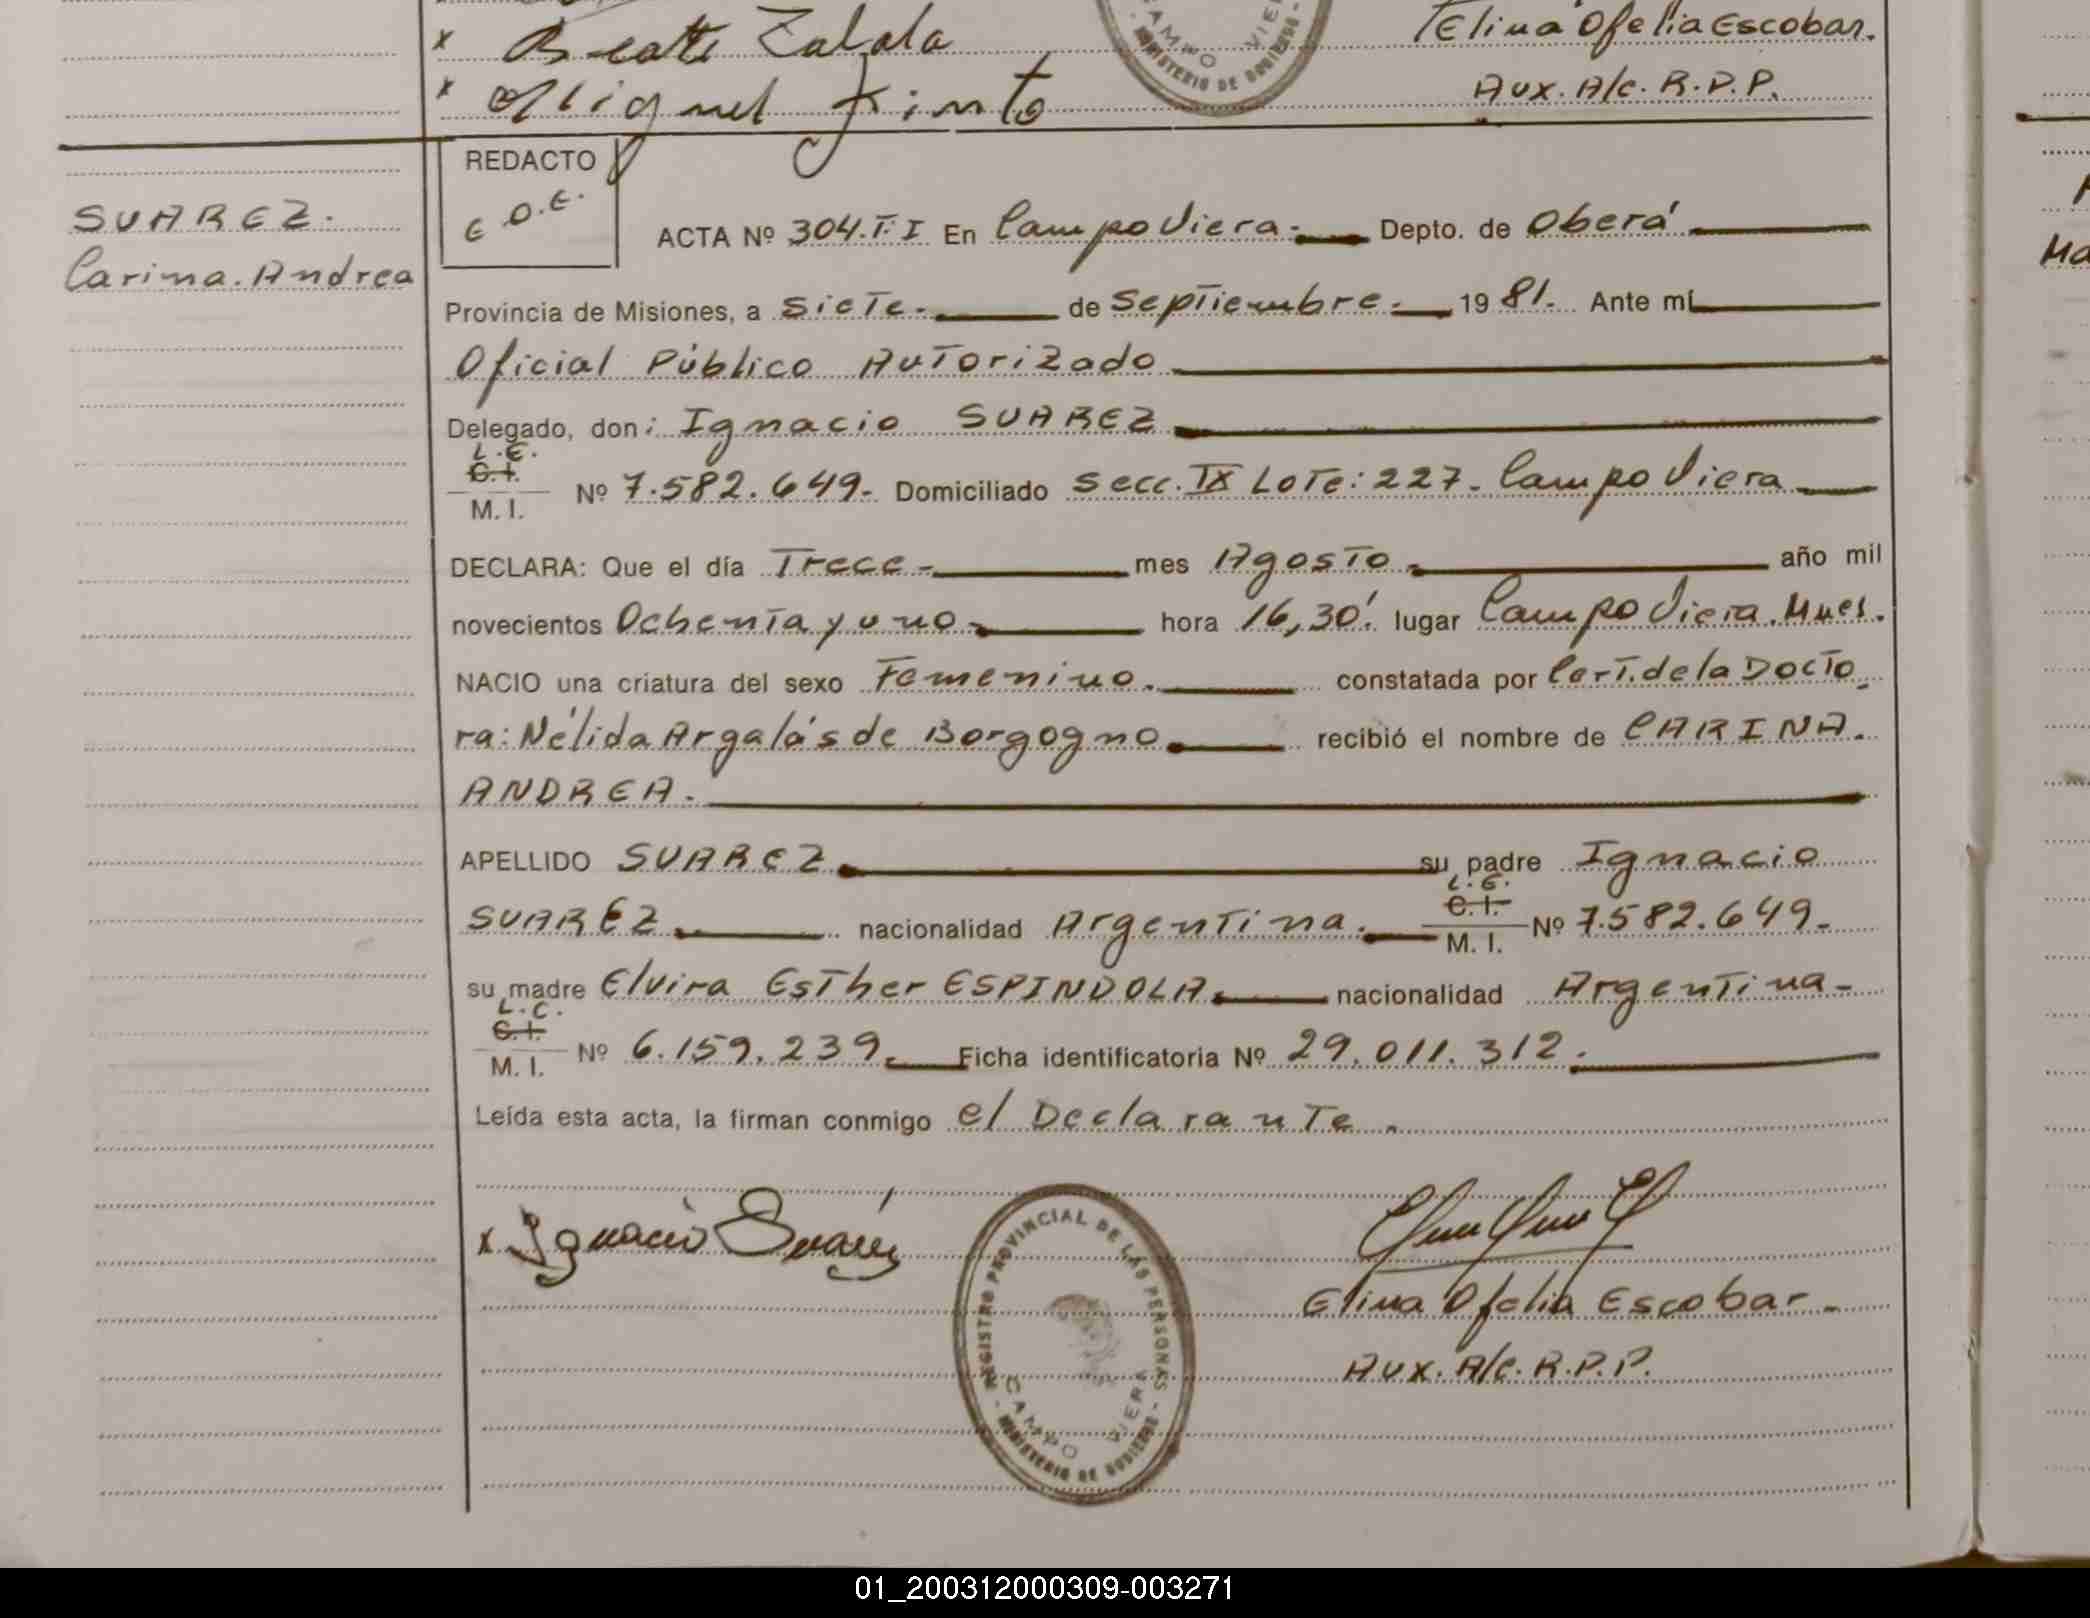 x Beatti Zalala
Telina Ofelia Escobar.
x Miguel Pinto
Aux. A/c. R.P.P.
REDACTO
E O.E.
SUAREZ.
Carina. Andrea
ACTA Nº 304.T.I En Campo Viera.- Depto. de Oberá
Provincia de Misiones, a Siete.- de Septiembre.- 1981. Ante mí
Oficial Público Autorizado
Delegado, don: Ignacio SUAREZ
L.E.
C.I.
M. I. Nº 7.582.649.- Domiciliado Secc. IX Lote: 227. Campo Viera
DECLARA: Que el día Trece.- mes Agosto.- año mil
novecientos Ochenta y uno.- hora 16,30'. lugar Campo Viera. Mnes.
NACIO una criatura del sexo Femenino. constatada por Cert. de la Docto
ra: Nélida Argalás de Borgogno. recibió el nombre de CARINA.
ANDREA.
APELLIDO SUAREZ. su padre Ignacio
SUAREZ. nacionalidad Argentina.
L.E.
C.I.
M. I. Nº 7.582.649.-
su madre Elvira Esther ESPINDOLA. nacionalidad Argentina-
L.C.
C.I.
M. I. Nº 6.159.239. Ficha identificatoria Nº 29.011.312.
Leída esta acta, la firman conmigo el Declarante.
x Ignacio Suárez
REGISTRO PROVINCIAL DE LAS PERSONAS
CAMPO VIERA
- MINISTERIO DE GOBIERNO -
Elina Ofelia Escobar.
Aux. A/c. R.P.P.
01_200312000309-003271